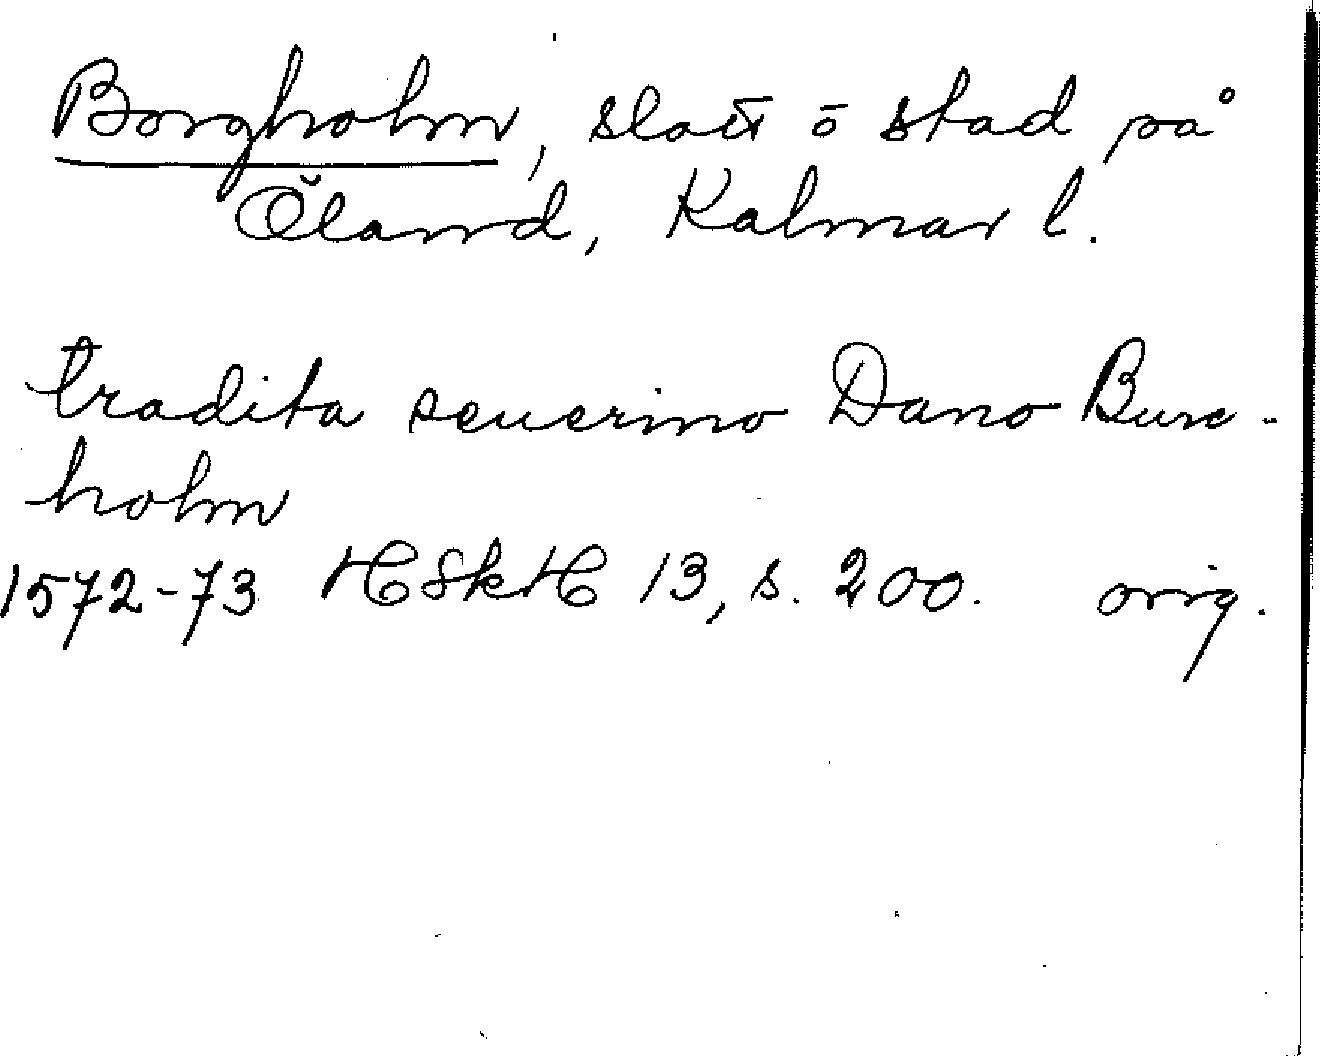 Borgholm, slott ō stad på
Öland, Kalmar l.
tradita seuerino Dano Burc-
holm
1572-73 HSkH 13, s. 200. orig.